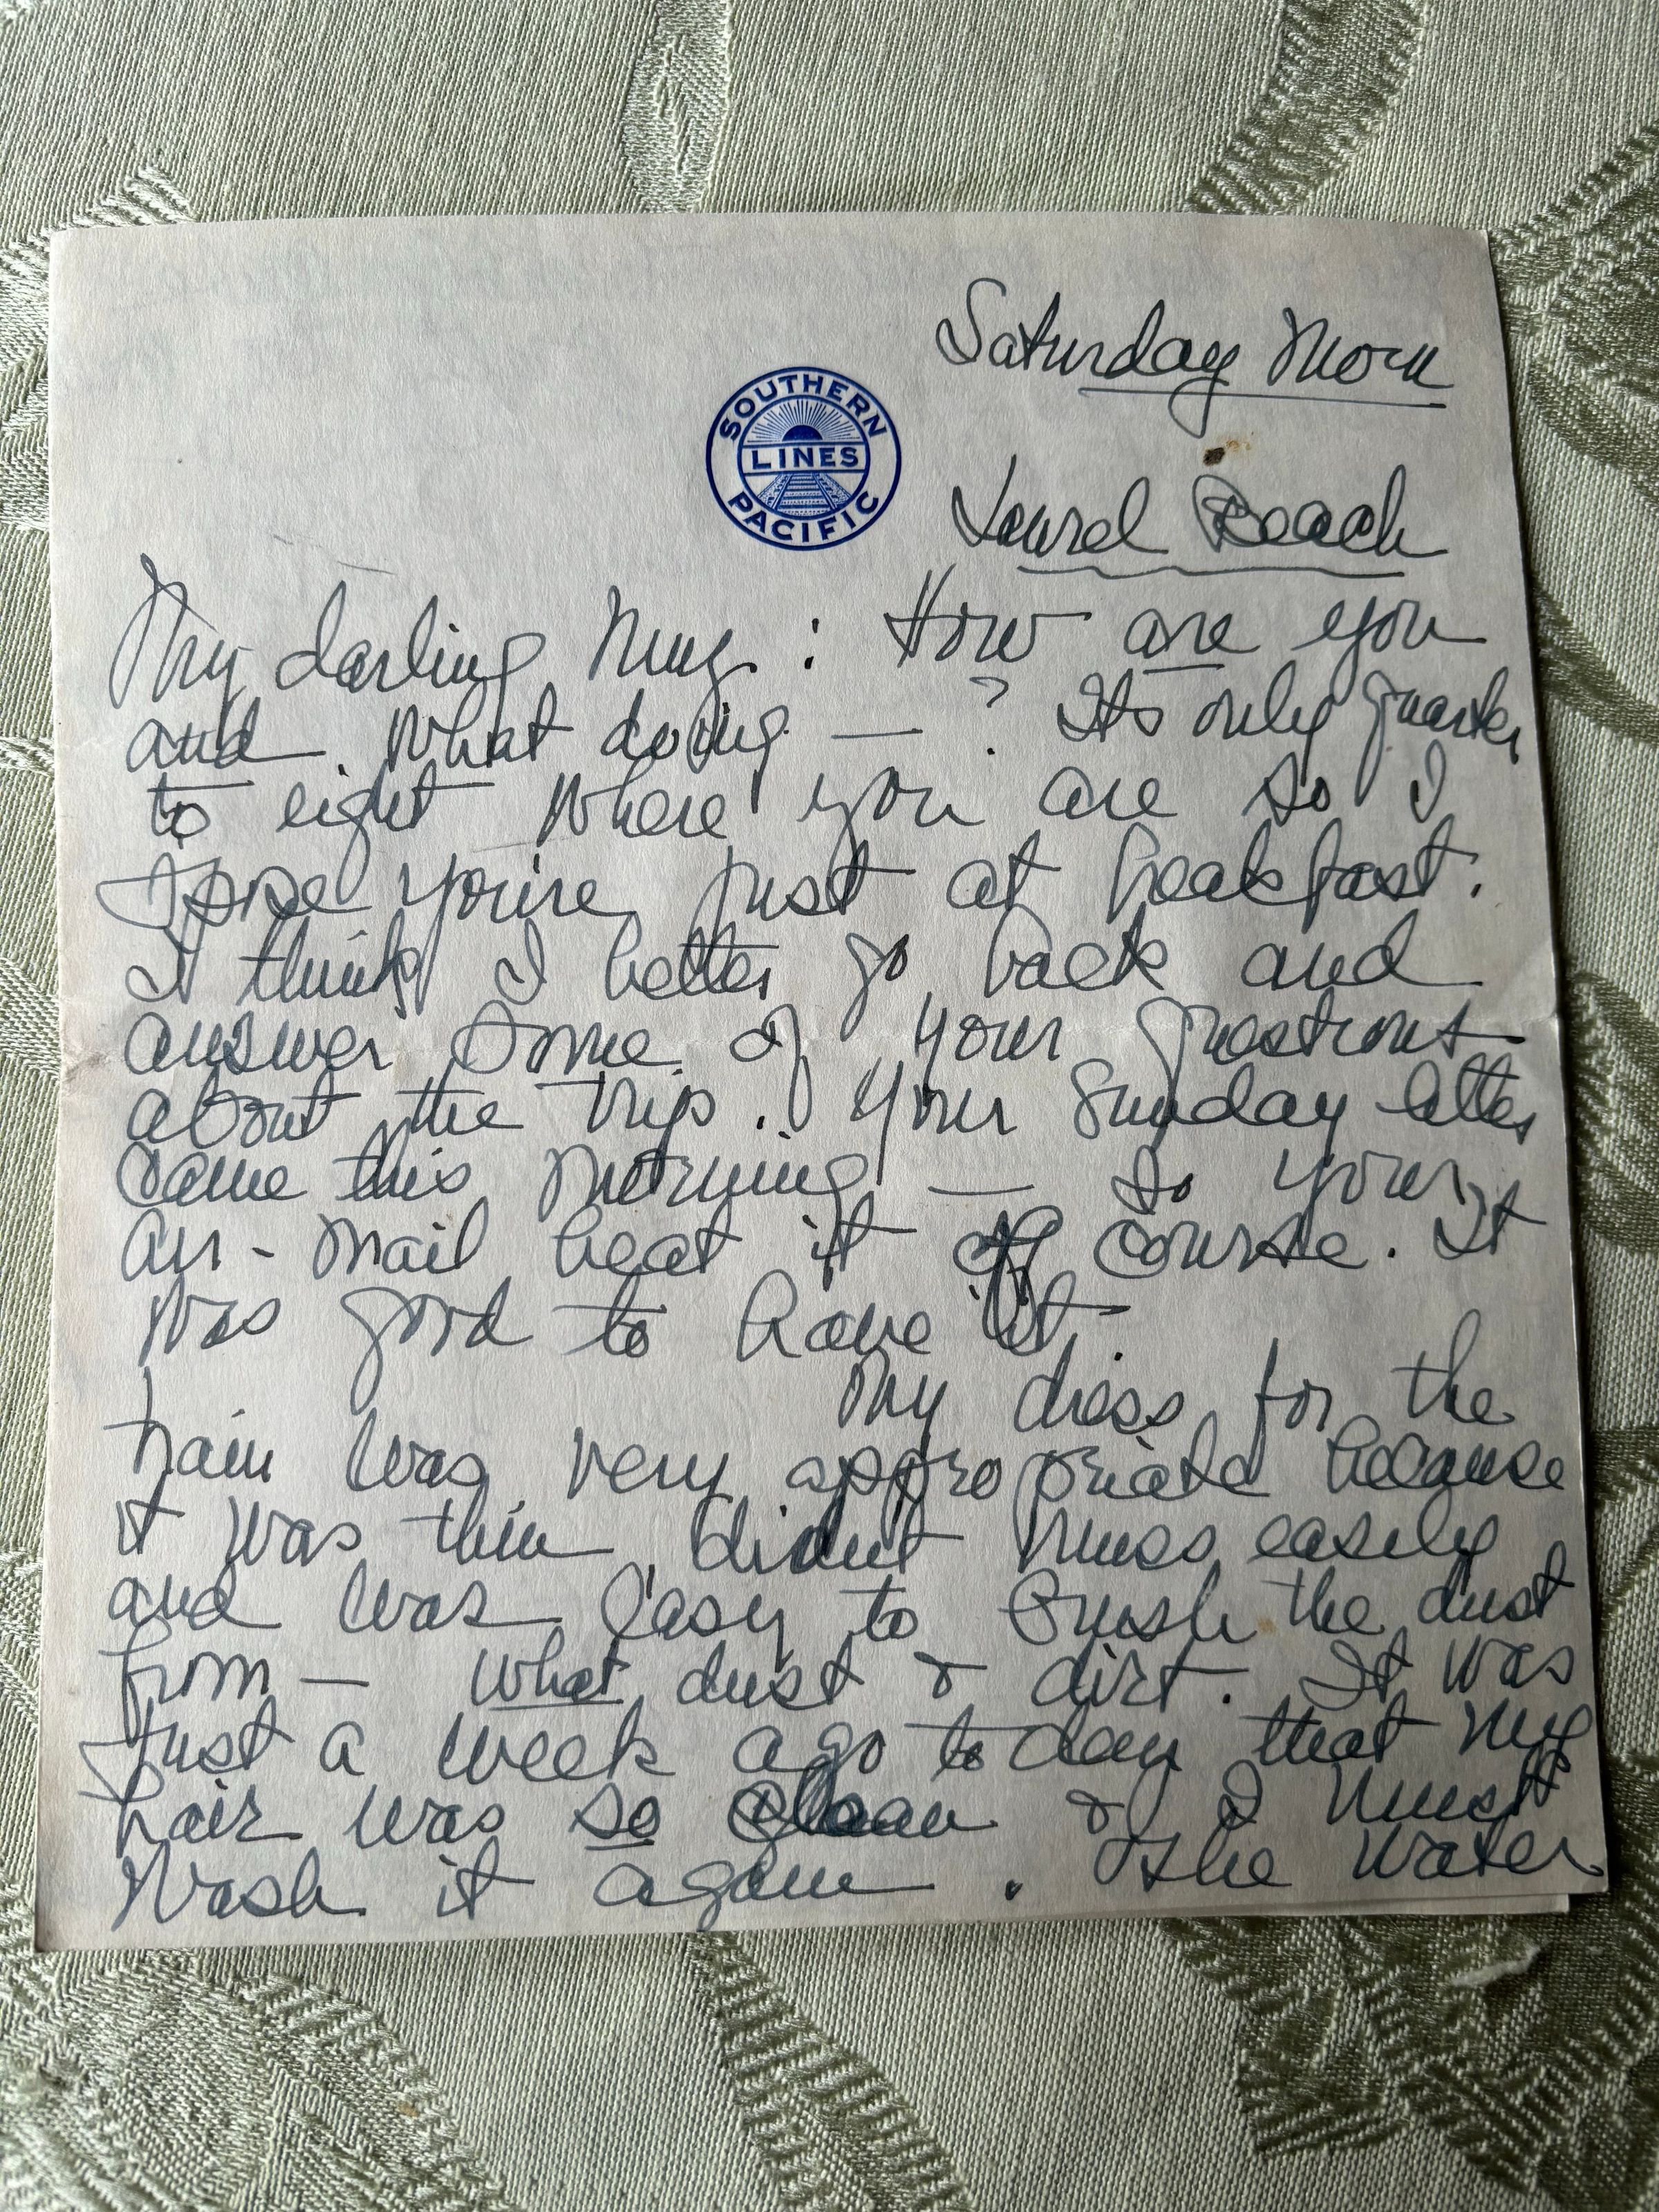 Saturday Morn
SOUTHERN
LINES
PACIFIC
Laurel Beach
My darling Mug: How are you
and what doing — ? Its only quarter
to eight where you are so I
spose you're just at breakfast.
I think I better go back and
answer some of your questions
about the trip. Your Sunday letter
came this morning — so your
air-mail beat it of course. It
was good to have it.
My dress for the
train was very appropriate because
it was thin, didnt muss easily
and was easy to brush the dust
from — what dust & dirt. It was
just a week ago today that my
hair was so clean & I must
wash it again. The water